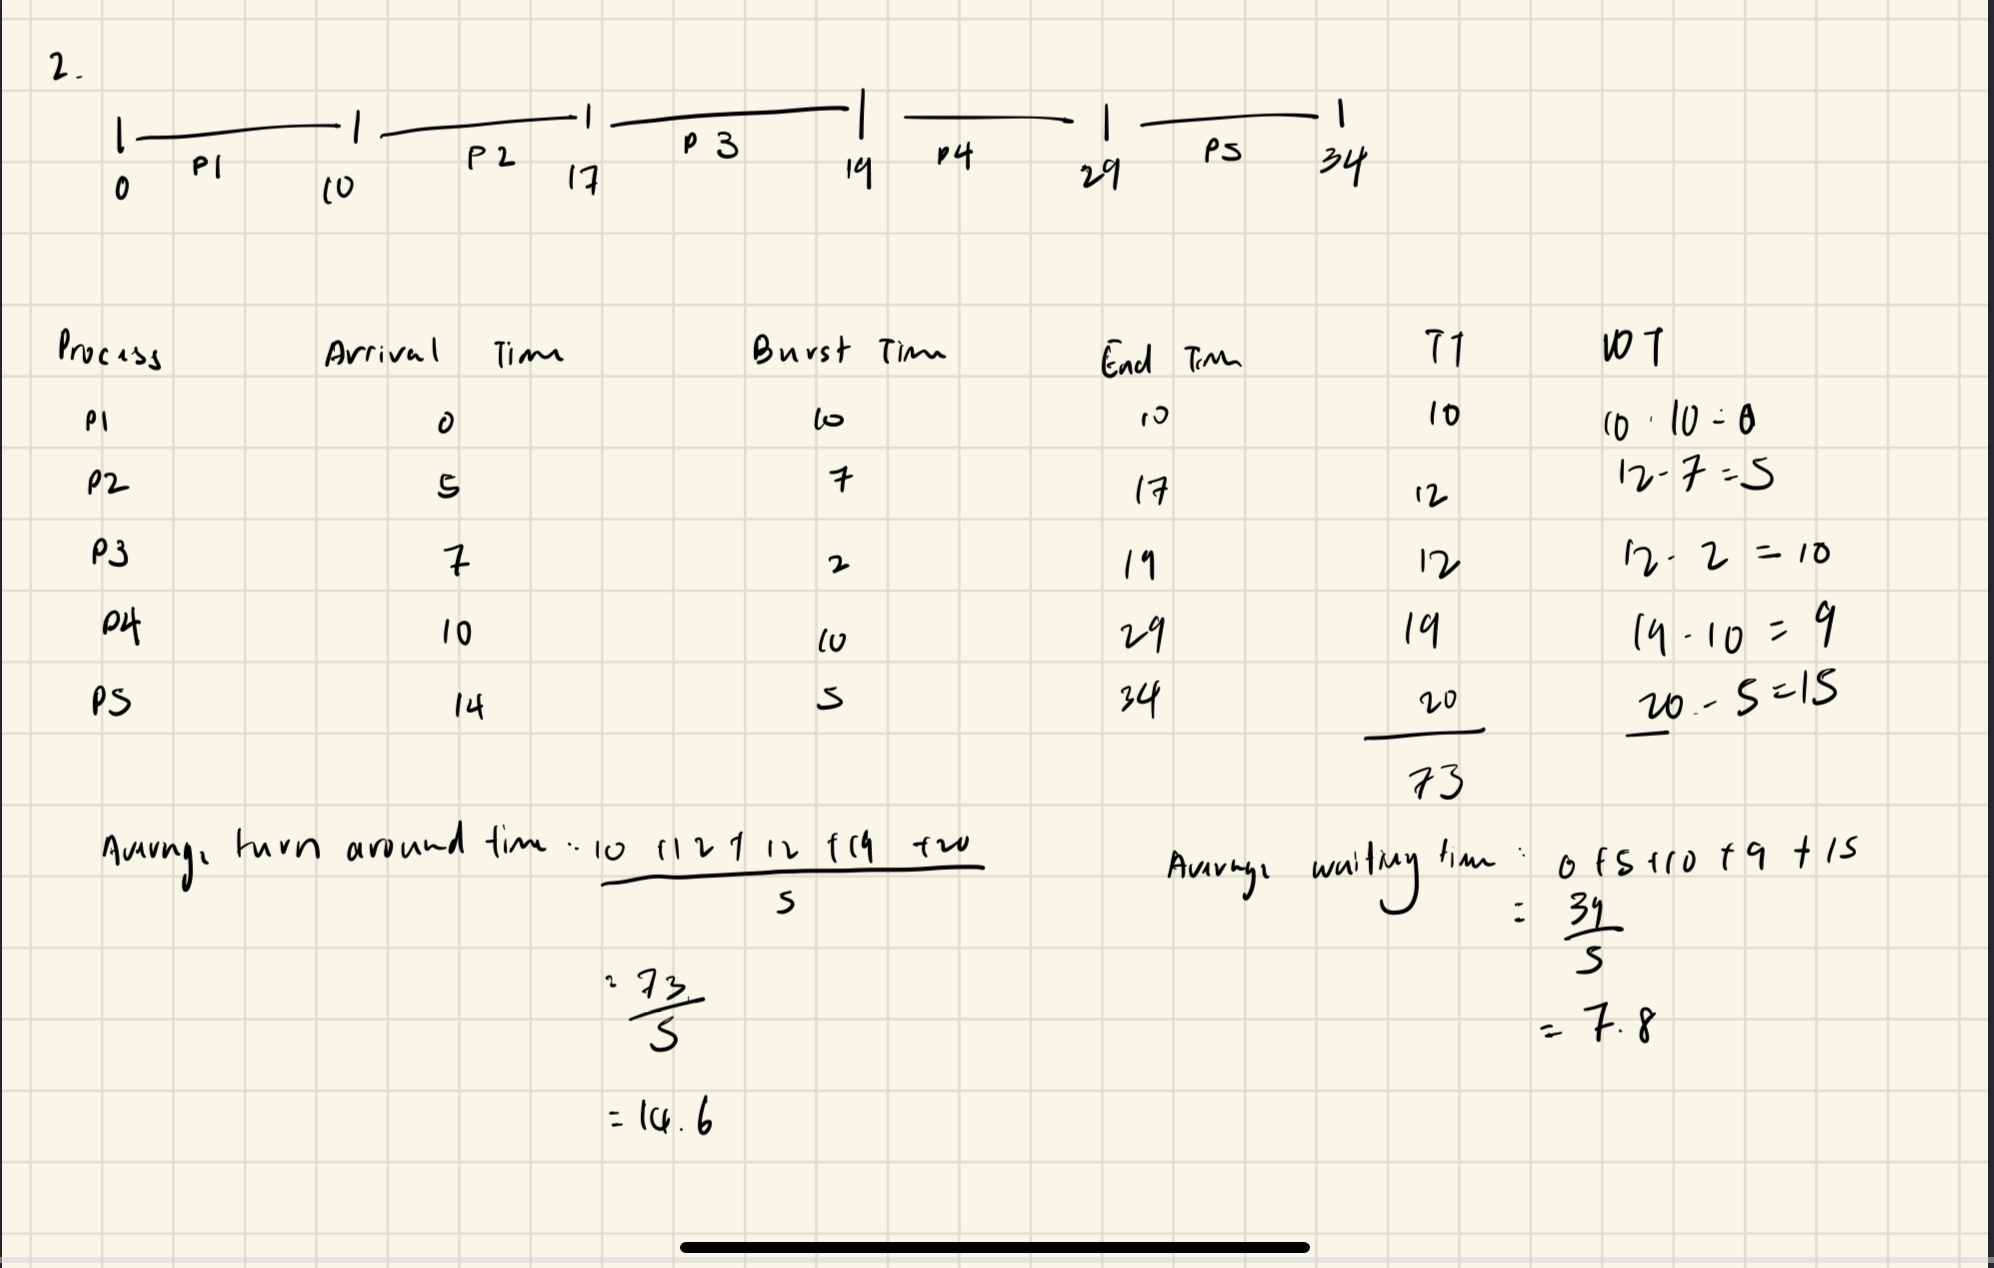 2.
P1 P2 P3 P4 P5
0 10 17 19 29 34
Process Arrival Time Burst Time End Time TT WT
P1 0 10 10 10 10 - 10 = 0
P2 5 7 17 12 12 - 7 = 5
P3 7 2 19 12 12 - 2 = 10
P4 10 10 29 19 19 - 10 = 9
P5 14 5 34 20 20 - 5 = 15
73
Average turn around time : 10 + 12 + 12 + 19 + 20
5
= 73
5
= 14.6
Average waiting time : 0 + 5 + 10 + 9 + 15
= 39
5
= 7.8